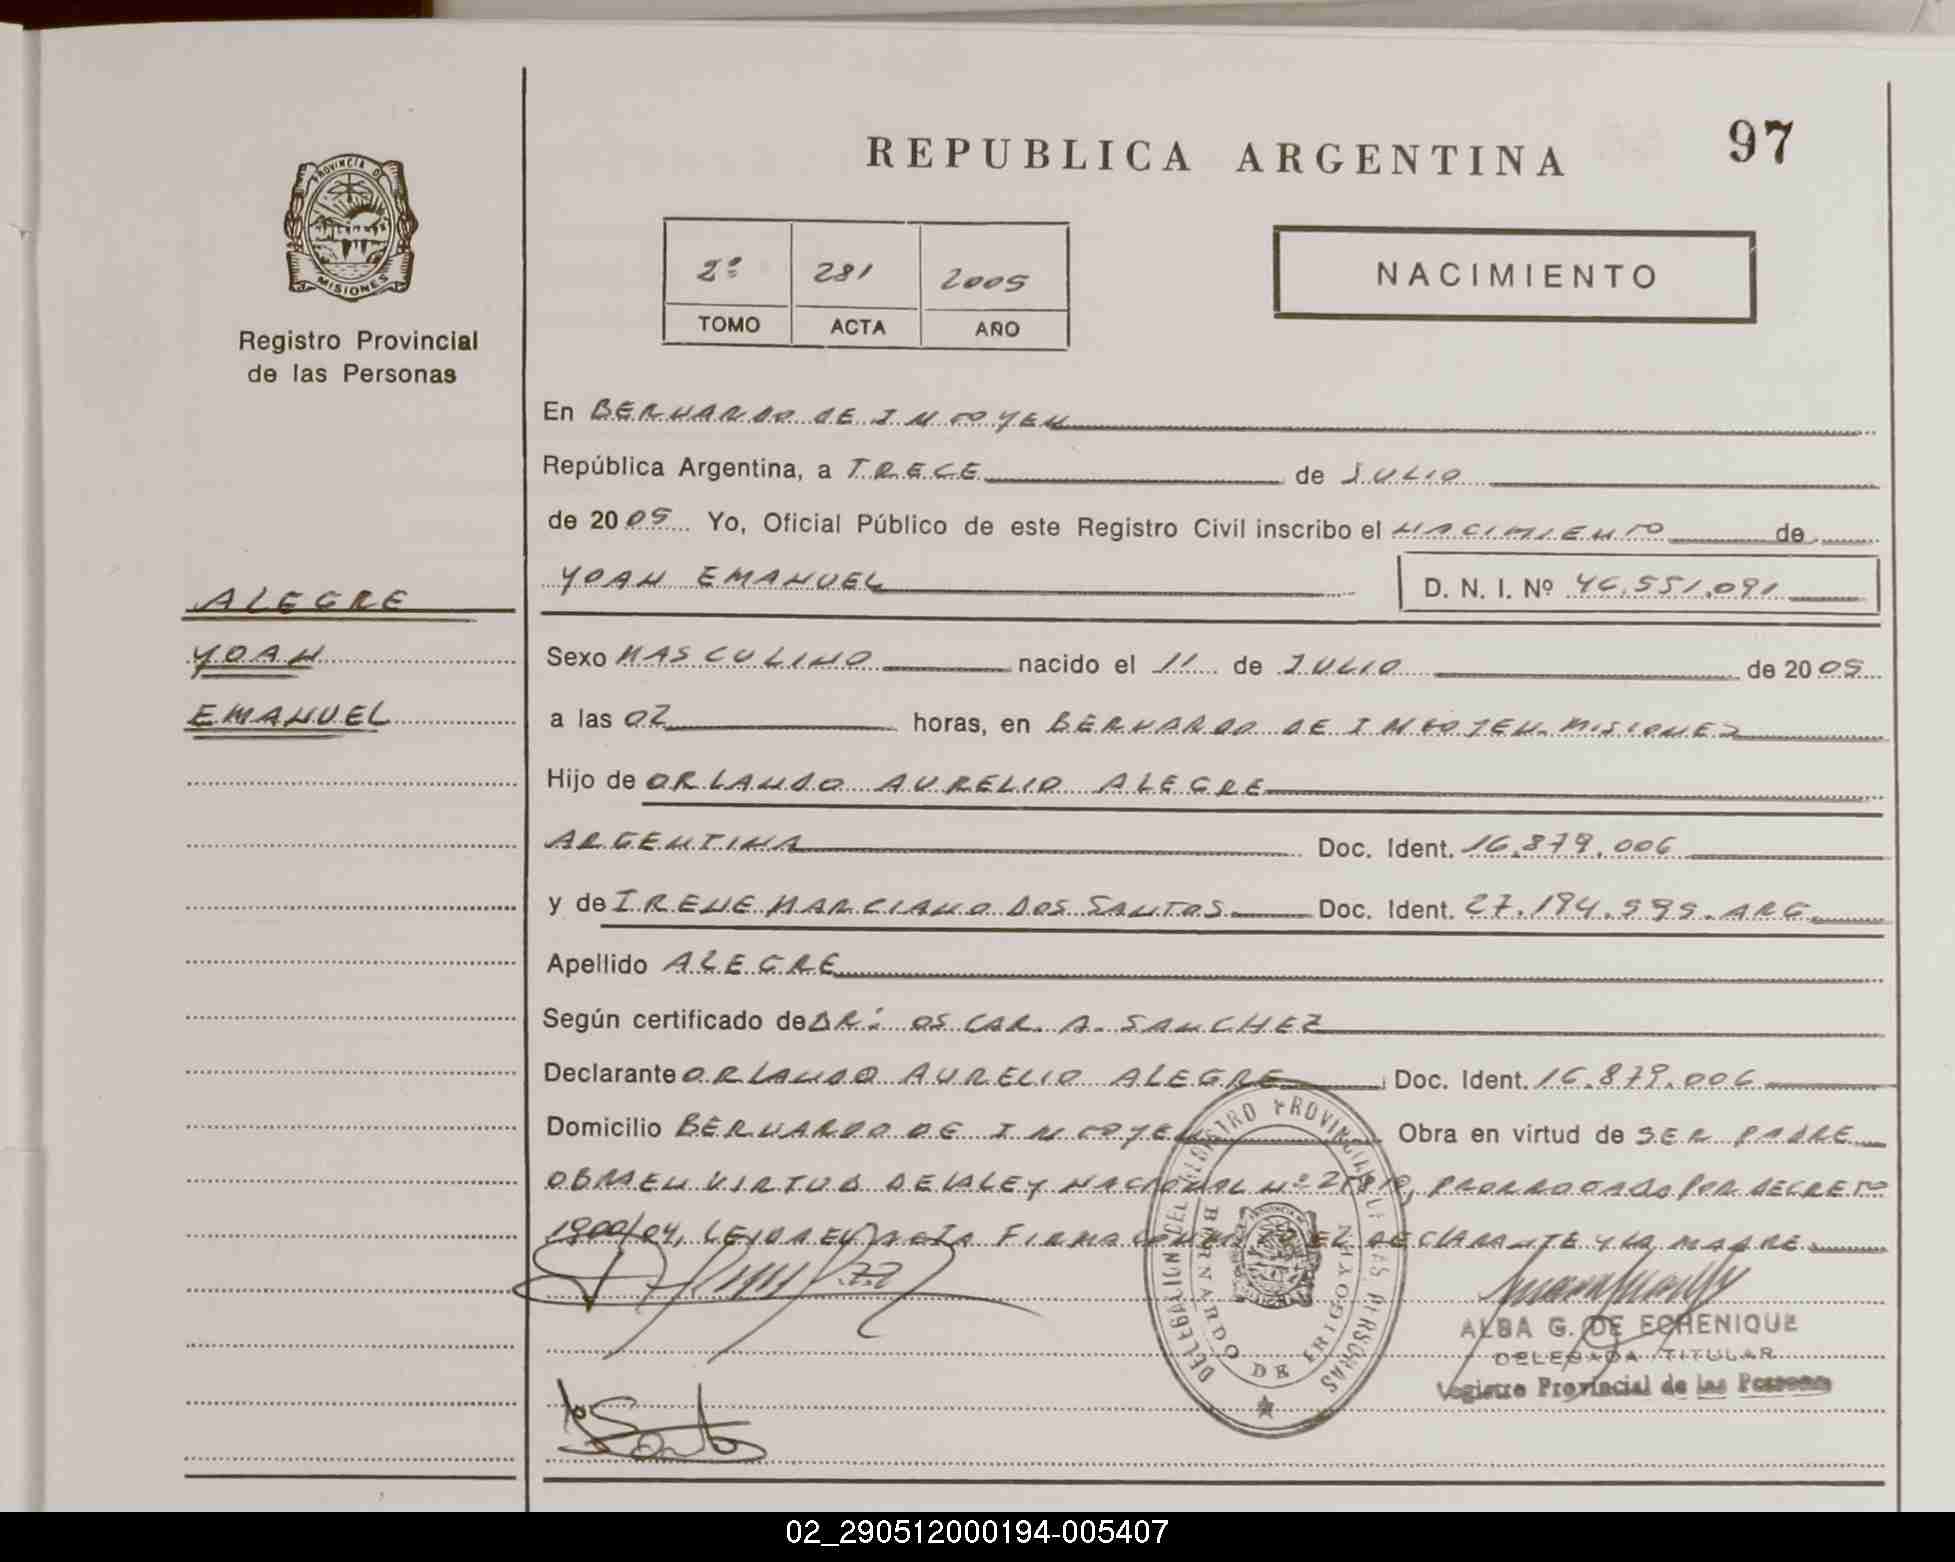 REPUBLICA ARGENTINA
97
PROVINCIA DE MISIONES
Registro Provincial
de las Personas
2º 281 2005
TOMO ACTA AÑO
NACIMIENTO
ALEGRE
YOAN
EMANUEL
En BERNARDO DE IRIGOYEN
República Argentina, a TRECE de JULIO
de 2005 Yo, Oficial Público de este Registro Civil inscribo el NACIMIENTO de
YOAN EMANUEL D. N. I. Nº 46.551.091
Sexo MASCULINO nacido el 11 de JULIO de 2005
a las 02 horas, en BERNARDO DE IRIGOYEN. MISIONES
Hijo de ORLANDO AURELIO ALEGRE
ARGENTINA Doc. Ident. 16.879.006
y de IRENE MARCIANO DOS SANTOS Doc. Ident. 27.194.595. ARG
Apellido ALEGRE
Según certificado de DR: OSCAR. A. SANCHEZ
Declarante ORLANDO AURELIO ALEGRE Doc. Ident. 16.879.006
Domicilio BERNARDO DE IRIGOYEN Obra en virtud de SER PADRE
OBRA EN VIRTUD DE LA LEY NACIONAL Nº PRORROGADA POR DECRETO
1900/04, LEIDA EL ACTA FIRMA CONMIGO EL DECLARANTE Y LA MADRE
DELEGACION DEL REGISTRO PROVINCIAL DE LAS PERSONAS
BERNARDO DE IRIGOYEN
ALBA G. DE ECHENIQUE
DELEGADA TITULAR
Registro Provincial de las Personas
02_290512000194-005407